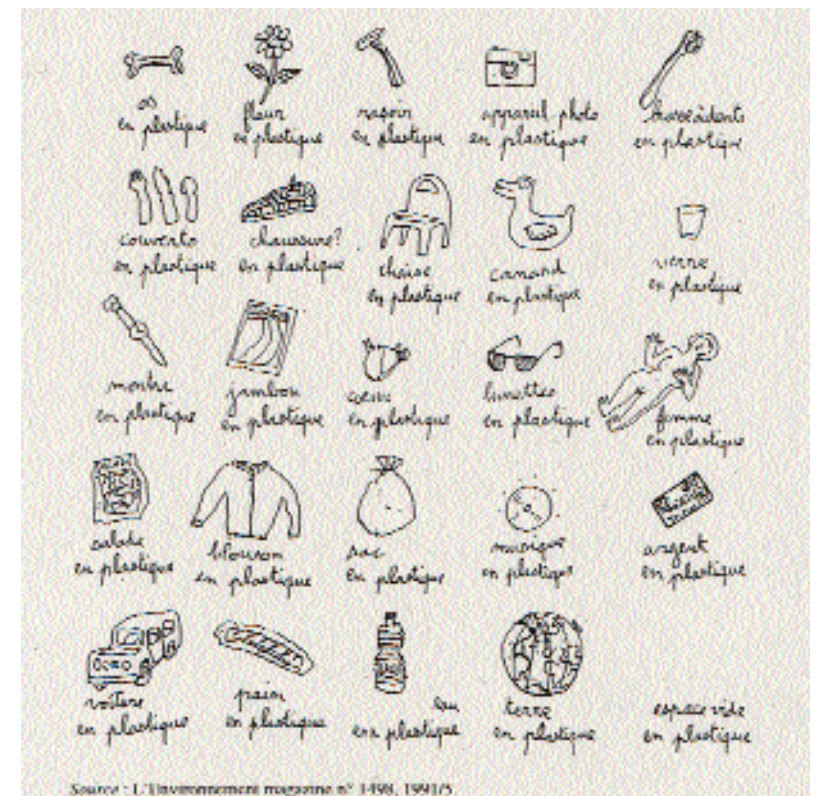 os
en plastique
fleur
en plastique
rasoir
en plastique
appareil photo
en plastique
brosse à dents
en plastique
couverts
en plastique
chaussure?
en plastique
chaise
en plastique
canard
en plastique
verre
en plastique
montre
en plastique
jambon
en plastique
coeur
en plastique
lunettes
en plastique
femme
en plastique
salade
en plastique
blouson
en plastique
sac
en plastique
musique
en plastique
argent
en plastique
voiture
en plastique
pain
en plastique
eau
en plastique
terre
en plastique
espace vide
en plastique
Source : L'Environnement magazine n° 1498, 1991/5